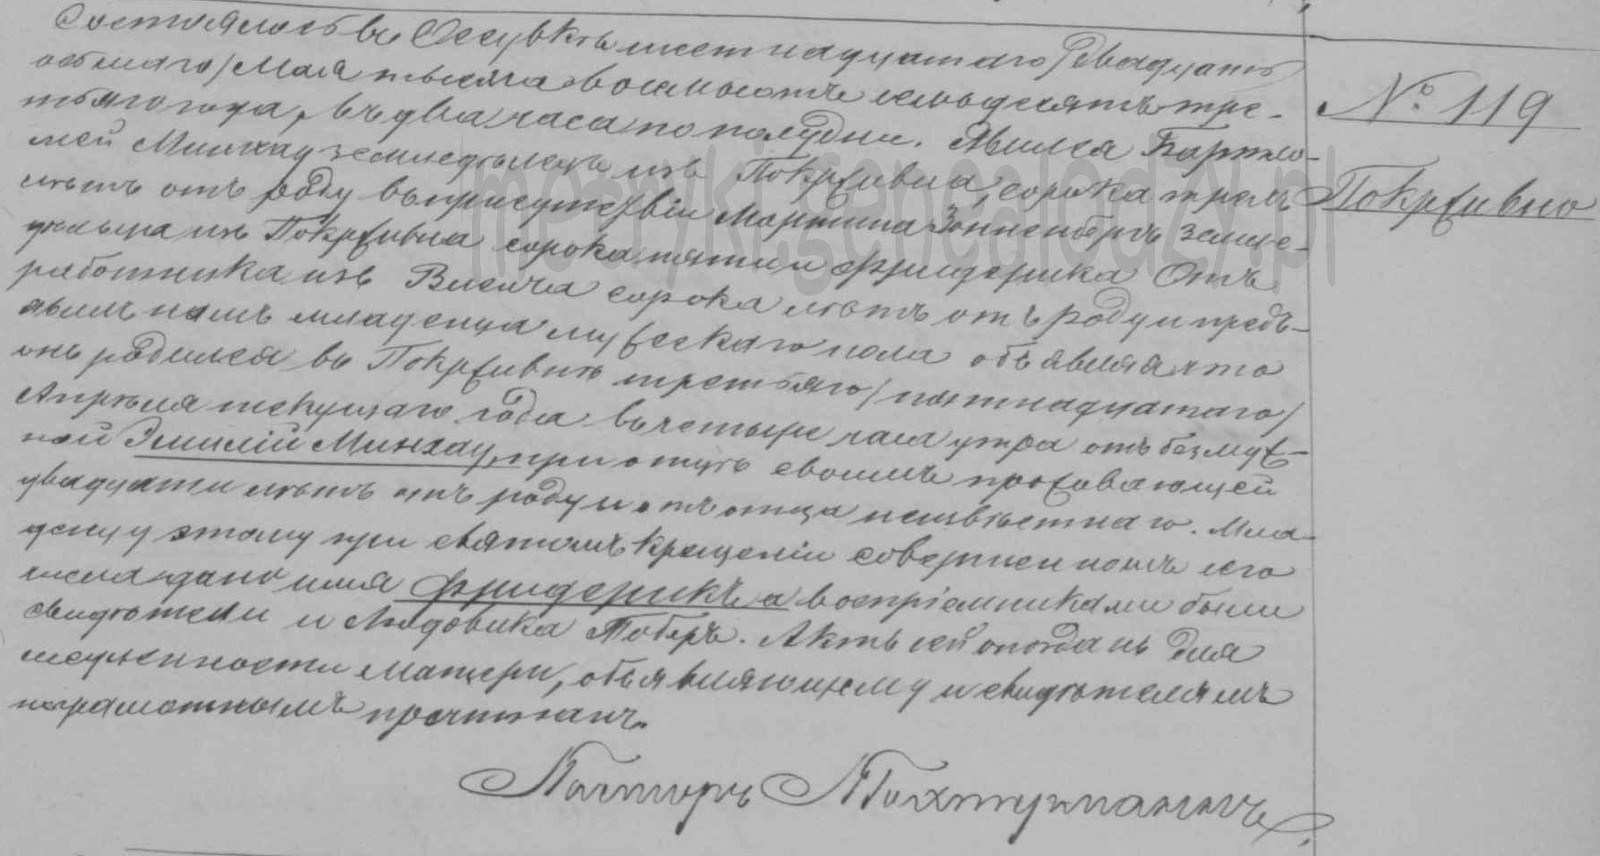 Состоялось въ Осувкѣ шестнадцатаго/двадцать
осьмаго/Мая тысяча восемьсотъ семьдесятъ тре-
тьяго года, въ два часа по полудни. Явился Бартло-
№ 119
мей Минхау земледѣлецъ изъ Покрживна, сорока трехъ
Покрживно
лѣтъ отъ роду въ присутствіи Мартина Зонненбергъ земле-
дѣльца изъ Покрживна сорока пяти и Фридерика Отъ
работника изъ сорока лѣтъ отъ роду и предъ-
явилъ намъ младенца мужескаго пола объявляя что
онъ родился въ Покрживнѣ третьяго/пятнадцатаго/
Апрѣля текущаго года въ четыре часа утра отъ безмуж-
ной Эмиліи Минхау, при отцѣ своимъ проживающей
двадцати лѣтъ отъ роду и отъ отца неизвѣстнаго. Мла-
денцу этому при святомъ крещеніи совершенномъ сего
числа дано имя Фридерикъ а воспріемниками были
свидѣтели и Людовика Тоберъ. Актъ сей опозданъ для
матери, объявляющему и свидѣтелямъ
неграмотнымъ прочитанъ.
Пасторъ
metryki.genealodzy.pl